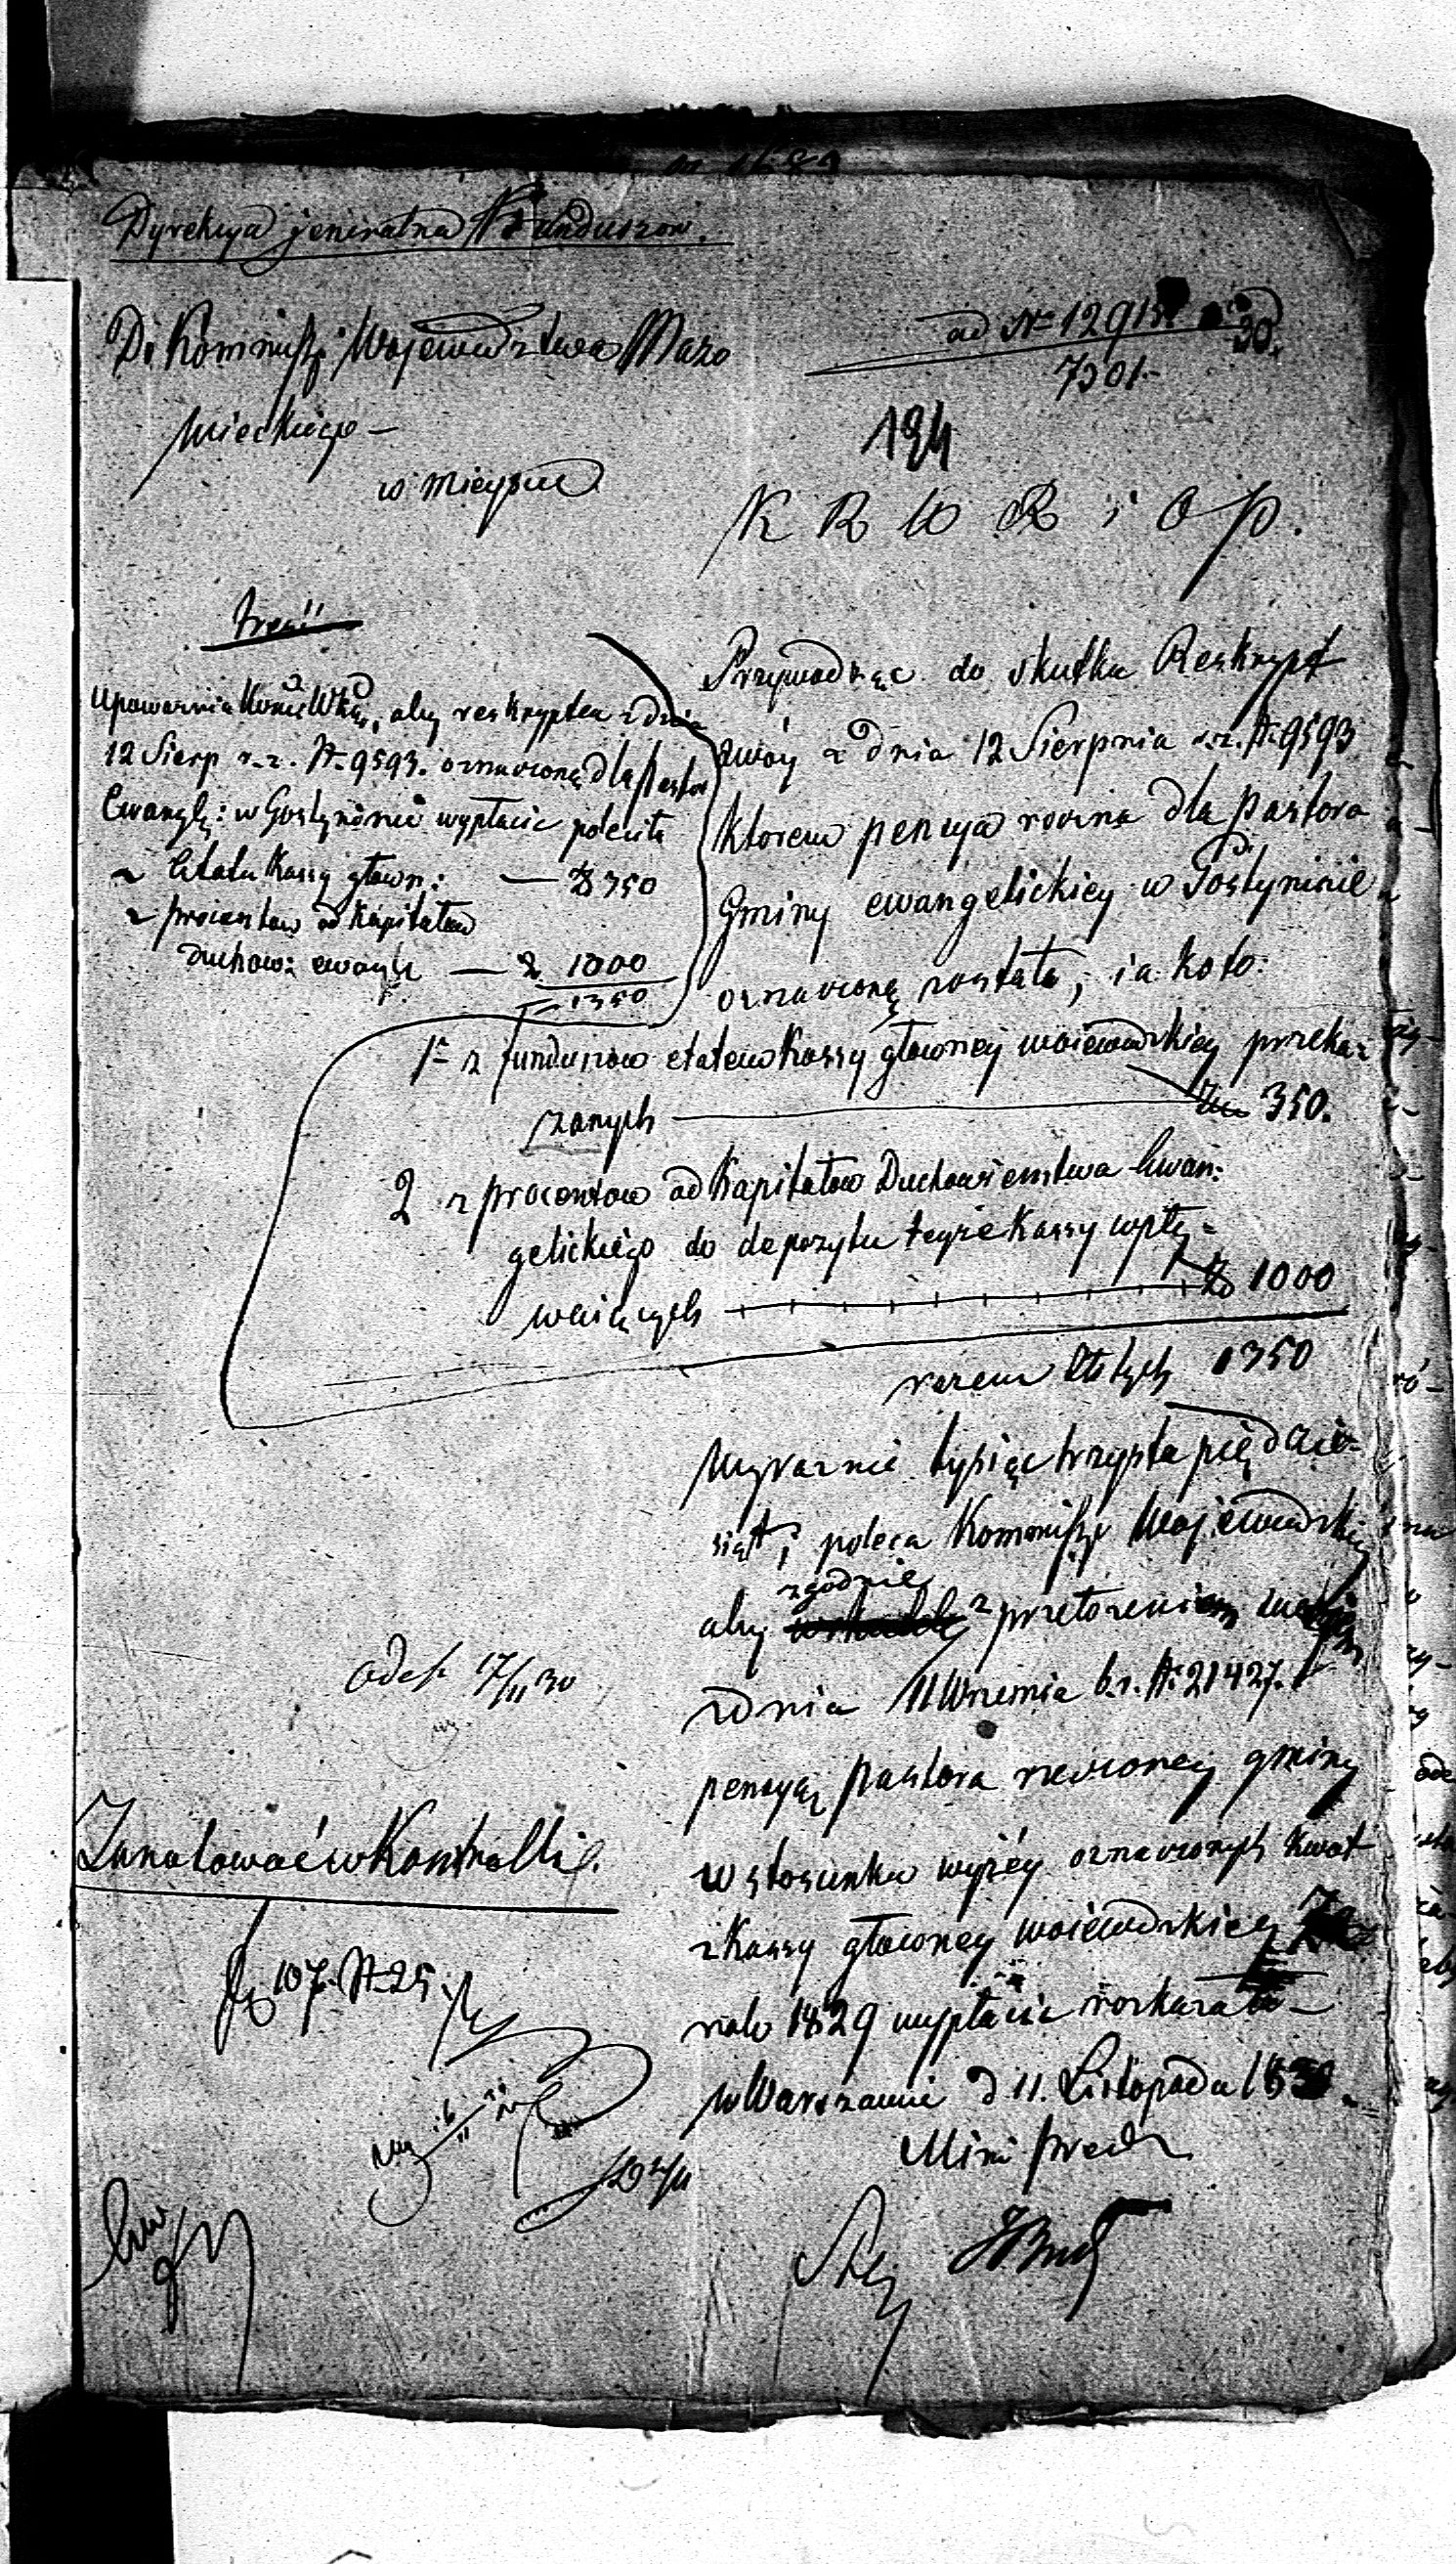 Dyrekcya jeneralna Funduszow.
Do Kommissyi Woiewodztwa Mazo
wieckiego —
w mieyscu
ad Nro 12913 30.
7301.
194
K R W R i O p.
treść
upoważnia Kom: Wdz, aby reskryptem z dnia
12 Sierp r. z. N. 9593. oznaczoną dla Pastor
Ewangl: w Gostyninie wypłacić poleciła
z Etatu Kassy głown: — Z 350
z procentow od Kapitałow
duchow: ewang — Z 1000
1350
Przywodząc do skutku Reskrypt
swóy z dnia 12 Sierpnia r. z. N. 9593
ktorem pensya roczna dla Pastora
Gminy ewangelickiey w Gostyninie
oznaczoną została, iako to:
1o z funduszow etatem Kassy głowney woiewodzkiey przeka-
zanych — 350.
2 z procentow od Kapitałow Duchowienstwa Ewan:
gelickiego do depozytu teyże Kassy wpły-
waiących — Z 1000
razem Złotych 1350
wyraznie tysiąc trzysta pięćdzie-
siąt, poleca Kommissyi Wojewodzkiey
zgodnie
aby z przełożeniem swoiem
z dnia 11 Wrzesnia b. r. N. 21427.
pensyą Pastora rzeczoney gminy
w stosunku wyżéy oznaczonych kwot
z Kassy głowney woiewodzkiey za
rok 1829 wypłacić rozkazała —
w Warszawie d 11. Listopada 1830.
Mini Prez
odesł 17/11 30
Zanotować w Kontrolli.
107. N. 25.